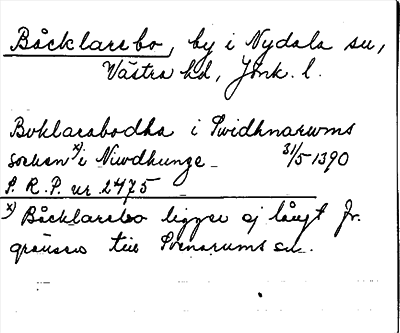 Båcklarebo, by i Nydala sn,
Västra hd, Jönk. l.
Boklarabodha i Swidhnarums
socken x) i Niwdhunge 31/5 1390
S. R. P. nr 2475
x) Båcklarebo ligger ej långt fr.
gränsen till Svenarums sn.